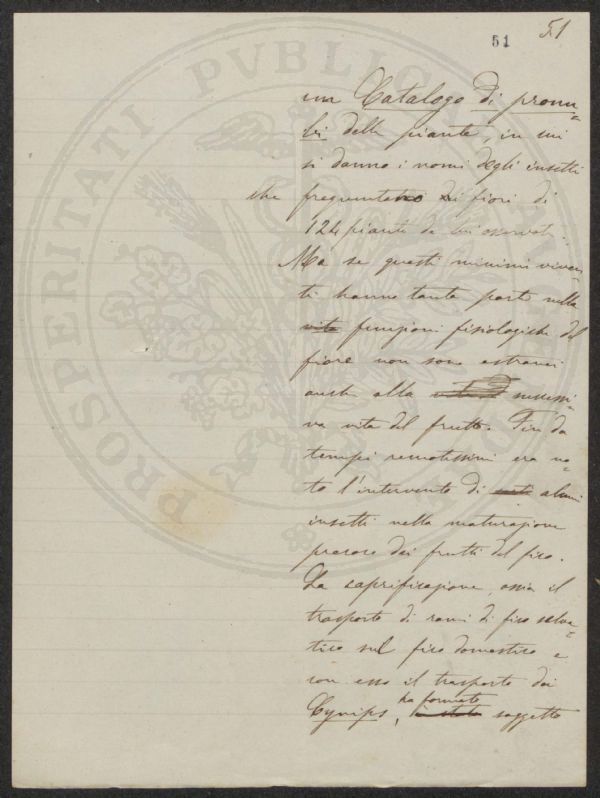 51
51
un Catalogo di pronu=
bi delle piante, in cui
si danno i nomi degli insetti
che frequentano i fiori di
124 piante da lui osservate.
Ma se questi minimi viven=
ti hanno tanta parte nelle
vita funzioni fisiologiche del
fiore non sono estranei
anche alla successi=
va vita del frutto. Fin da
tempi remotissimi era no=
to l'intervento di alcuni
insetti nella maturazione
precoce dei frutti del fico.
La caprificazione, ossia il
trasporto di rami di fico selva=
tico sul fico domestico e
con esso il trasporto dei
ha formato
Cynips, è stata soggetto
PROSPERITATI PUBLICAE